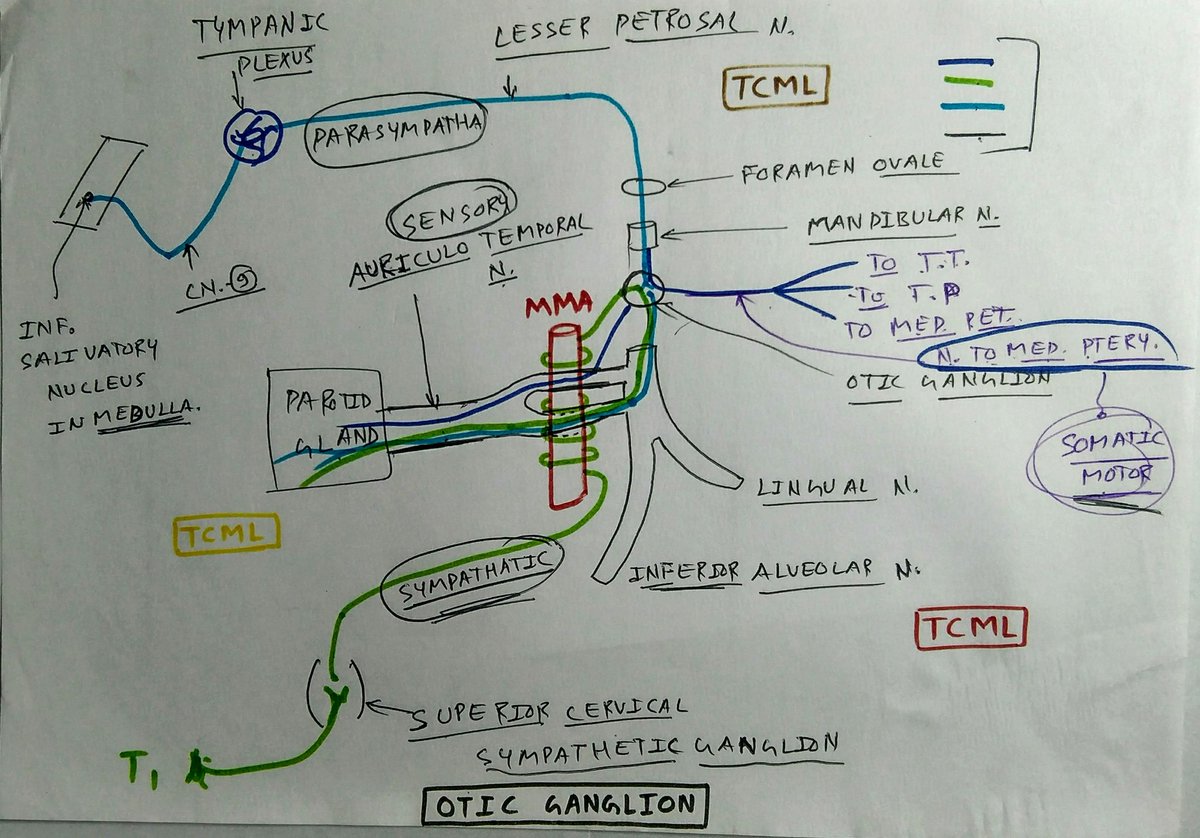 TYMPANIC
PLEXUS
LESSER PETROSAL N.
TCML
PARASYMPATHA
FORAMEN OVALE
SENSORY
AURICULO TEMPORAL
N.
MANDIBULAR N.
CN. 9
TO T.T.
TO T.P
TO MED. PET.
N. TO MED. PTERY.
MMA
INF.
SALIVATORY
NUCLEUS
IN MEDULLA.
OTIC GANGLION
PAROTID
GLAND
SOMATIC
MOTOR
LINGUAL N.
TCML
SYMPATHATIC
INFERIOR ALVEOLAR N.
TCML
SUPERIOR CERVICAL
SYMPATHETIC GANGLION
T1
OTIC GANGLION